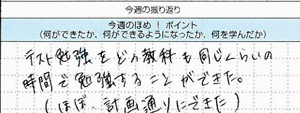 今週の振り返り
今週のほめ!ポイント
(何ができたか、何ができるようになったか、何を学んだか)
テスト勉強をどの教科も同じくらいの
時間で勉強することができた。
(ほぼ、計画通りにできた)